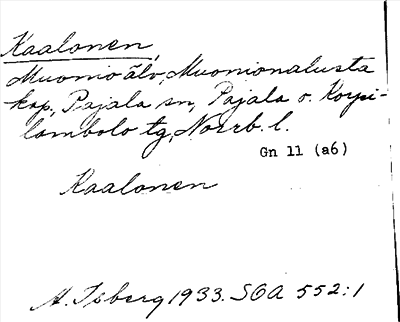 Kaalonen,
Muonio älv, Muonionalusta
kap, Pajala sn, Pajala o. Korpi-
lombolo tg, Norrb. l.
Gn 11 (a6)
Kaalonen
A. Isberg 1933. SOA 552:1